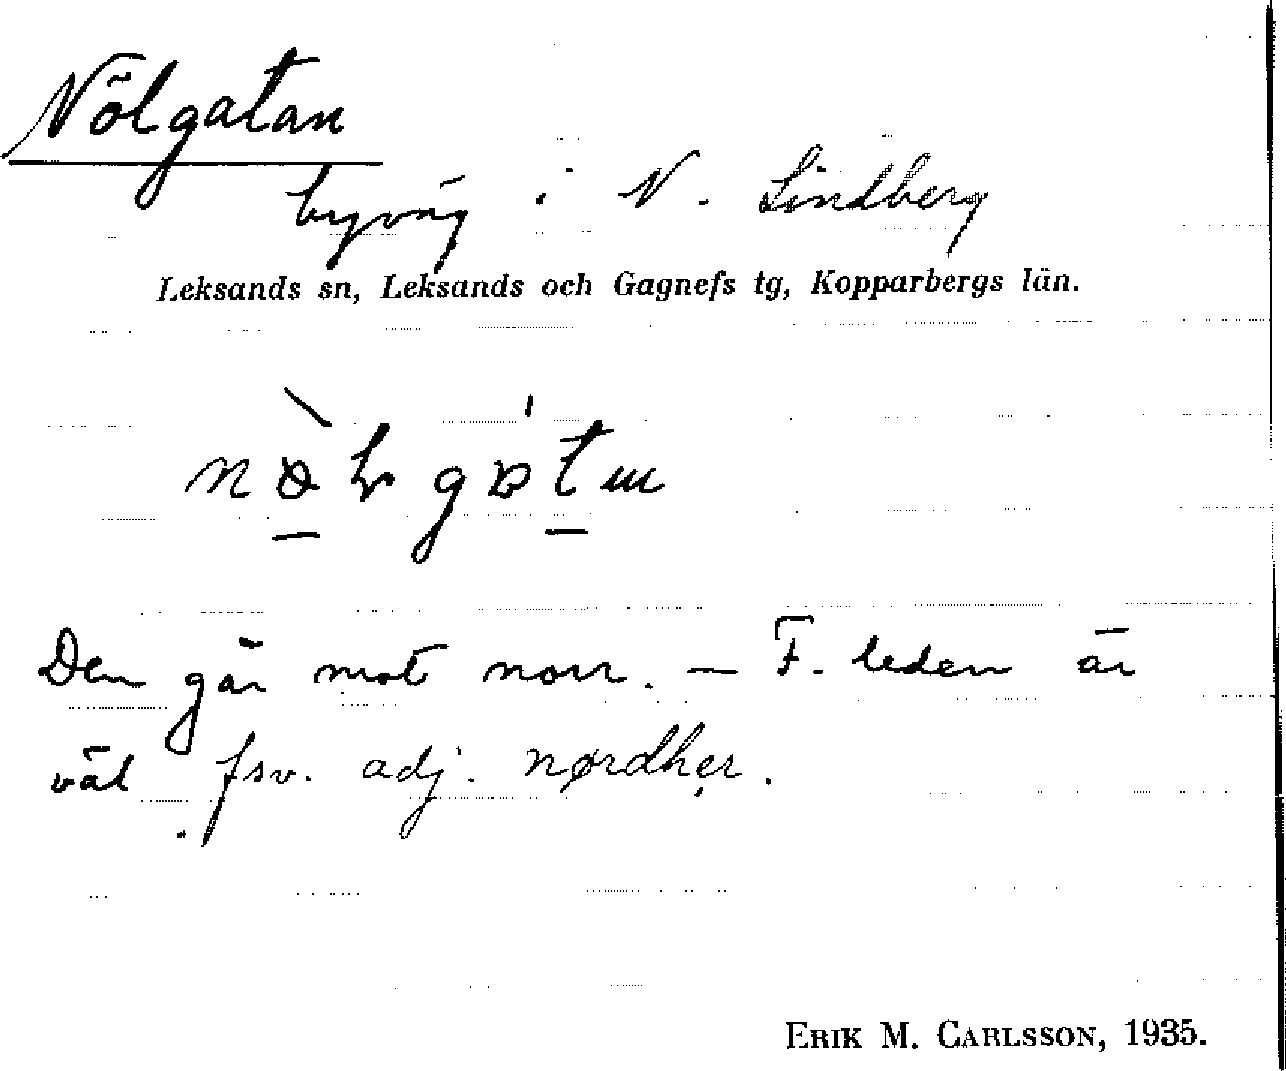 Nölgatan
byväg i N. Lindberg
Leksands sn, Leksands och Gagnefs tg, Kopparbergs län.
Den går mot norr. — F. leden är
väl fsv. adj. nørdher.
ERIK M. CARLSSON, 1935.